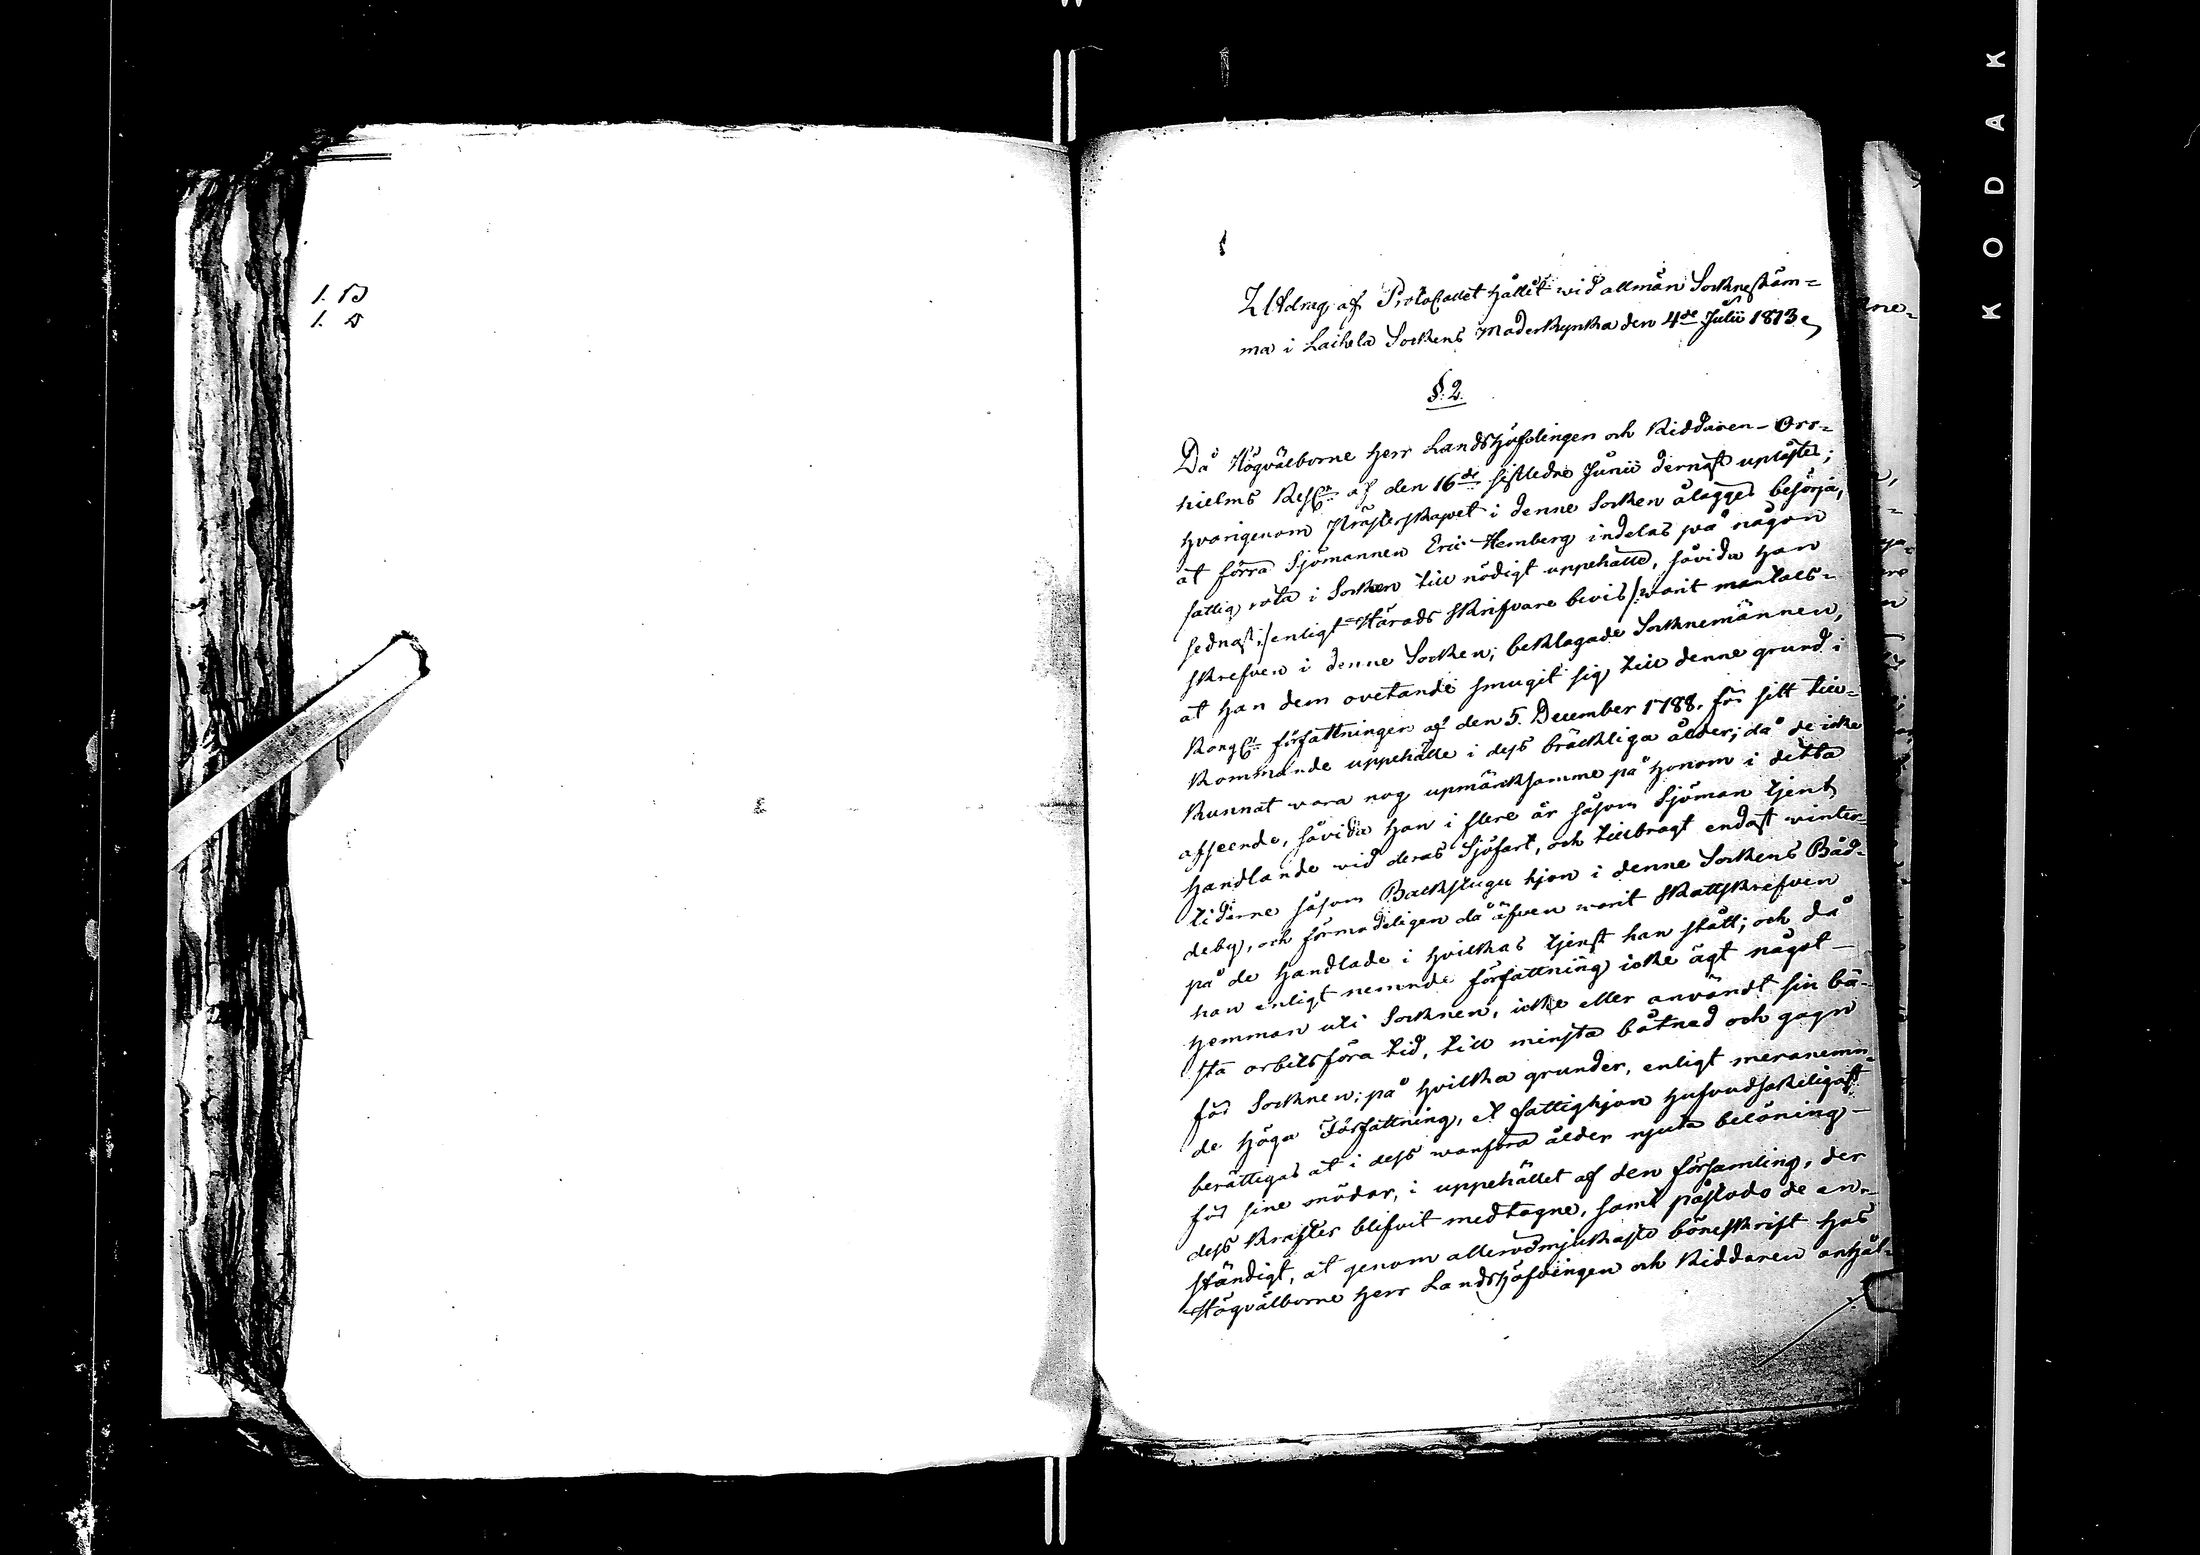 1. B
1. D
Utdrag af Protocollet hållit wid allmän Sockneståm=
ma i Laihela Sockens Moderkyrka den 4de Julii 1813.
§. 2.
Då Högvälborne Herr Landshöfdingen och Riddaren Orr=
hielms Resn af den 16de sistledne Junii dernäst uplästes;
hvarigenom Prästerskapet i denne Socken ålägges besörja,
at förra Sjömannen Eric Hemberg indelas på någon
fattig rota i Socken till nödigt uppehälle, såvida han
sednast /: enligt Härads Skrifvare bevis :/ warit mantals=
skrefven i denne Socken; beklagade Socknemännen,
at han dem ovetande smugit sig till denne grund i
Kongl. författningen af den 5. December 1788. för sitt till=
kommande uppehälle i dess bräckliga ålder; då de icke
kunnat vara nog upmärksamme på honom i detta
afseende, såvida han i flere år såsom Sjöman tjent
Handlande vid deras Sjöfart, och tillbragt endast vinter=
tiderne såsom Backstugu hjon i denne Sockens Båd=
deby, och förmodeligen då äfven warit skattskrefven
på de Handlade i hvilkas tjenst han stått; och då
han enligt nemnde författning icke ägt något
hemman uti Socknen, icke eller användt sin bä=
sta arbetsföra tid, till minsta båtnad och gagn
för Socknen; på hvilka grunder, enligt meranemn=
de höga Författning, et fattighjon hufvudsakeligast
berättigas at i dess wanföra ålder njuta belöning
för sine mödor, i uppehället af den församling, der
dess krafter blifvit medtagne, samt påstodo de en=
ständigt, at genom allerödmjukaste böneskrift hos
Högvälborne Herr Landshöfdingen och Riddaren anhål=
ne=
KODAK